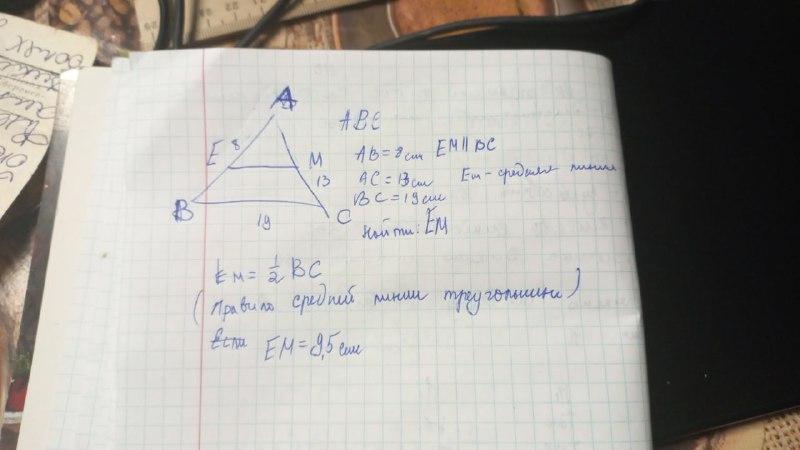 A
E 8 M
13
B
19 C
ABC
AB=8см EM||BC
AC=13см Em-средняя линия
BC=19см
Найти: EM
Em=½BC
(Правило средней линии треугольника)
Если EM=9,5см